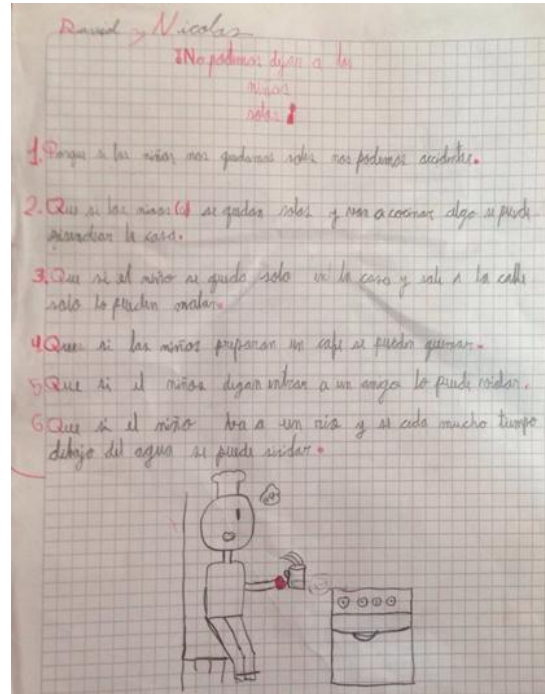 David y Nicolas
¡No podemos dejar a los
niños
solos!
1. Porque si los niños nos quedamos solos nos podemos accidentar.
2. Que si los niños (a) se quedan solos y van a cocinar algo se puede
la casa.
3. Que si el niño se queda solo en la casa y sale a la calle
solo lo pueden matar.
4 Que si los niños preparan un cafe se pueden quemar.
5 Que si el niños dejan entrar a un amigo lo puede
6 Que si el niño va a un rio y se mucho tiempo
debajo del agua se puede